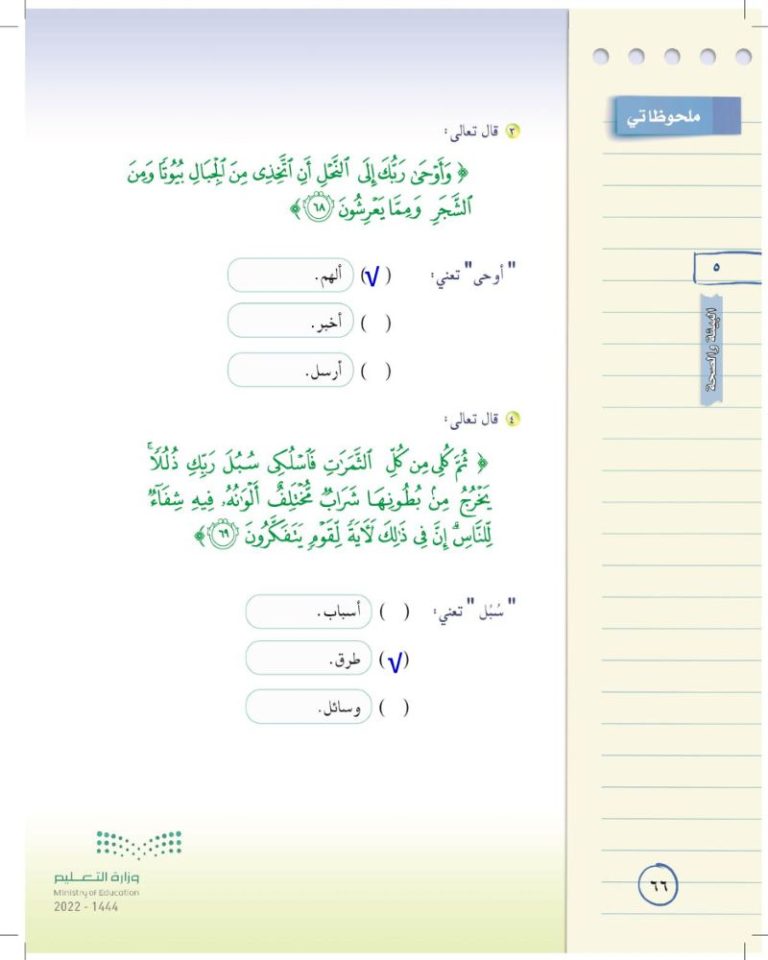 ملحوظاتي
٣ قال تعالى:
﴿ وَأَوْحَىٰ رَبُّكَ إِلَى النَّحْلِ أَنِ اتَّخِذِي مِنَ الْجِبَالِ بُيُوتًا وَمِنَ
الشَّجَرِ وَمِمَّا يَعْرِشُونَ ٦٨ ﴾
"أوحى" تعني: (√) ألهم.
( ) أخبر.
( ) أرسل.
٤ قال تعالى:
﴿ ثُمَّ كُلِي مِن كُلِّ الثَّمَرَٰتِ فَاسْلُكِي سُبُلَ رَبِّكِ ذُلُلًا ۚ
يَخْرُجُ مِنْ بُطُونِهَا شَرَابٌ مُّخْتَلِفٌ أَلْوَٰنُهُ فِيهِ شِفَآءٌ
لِّلنَّاسِ ۗ إِنَّ فِي ذَٰلِكَ لَآيَةً لِّقَوْمٍ يَتَفَكَّرُونَ ٦٩ ﴾
"سُبُل" تعني: ( ) أسباب.
(√) طرق.
( ) وسائل.
٥
البيئة والصحة
وزارة التعليم
Ministry of Education
2022 - 1444
٦٦